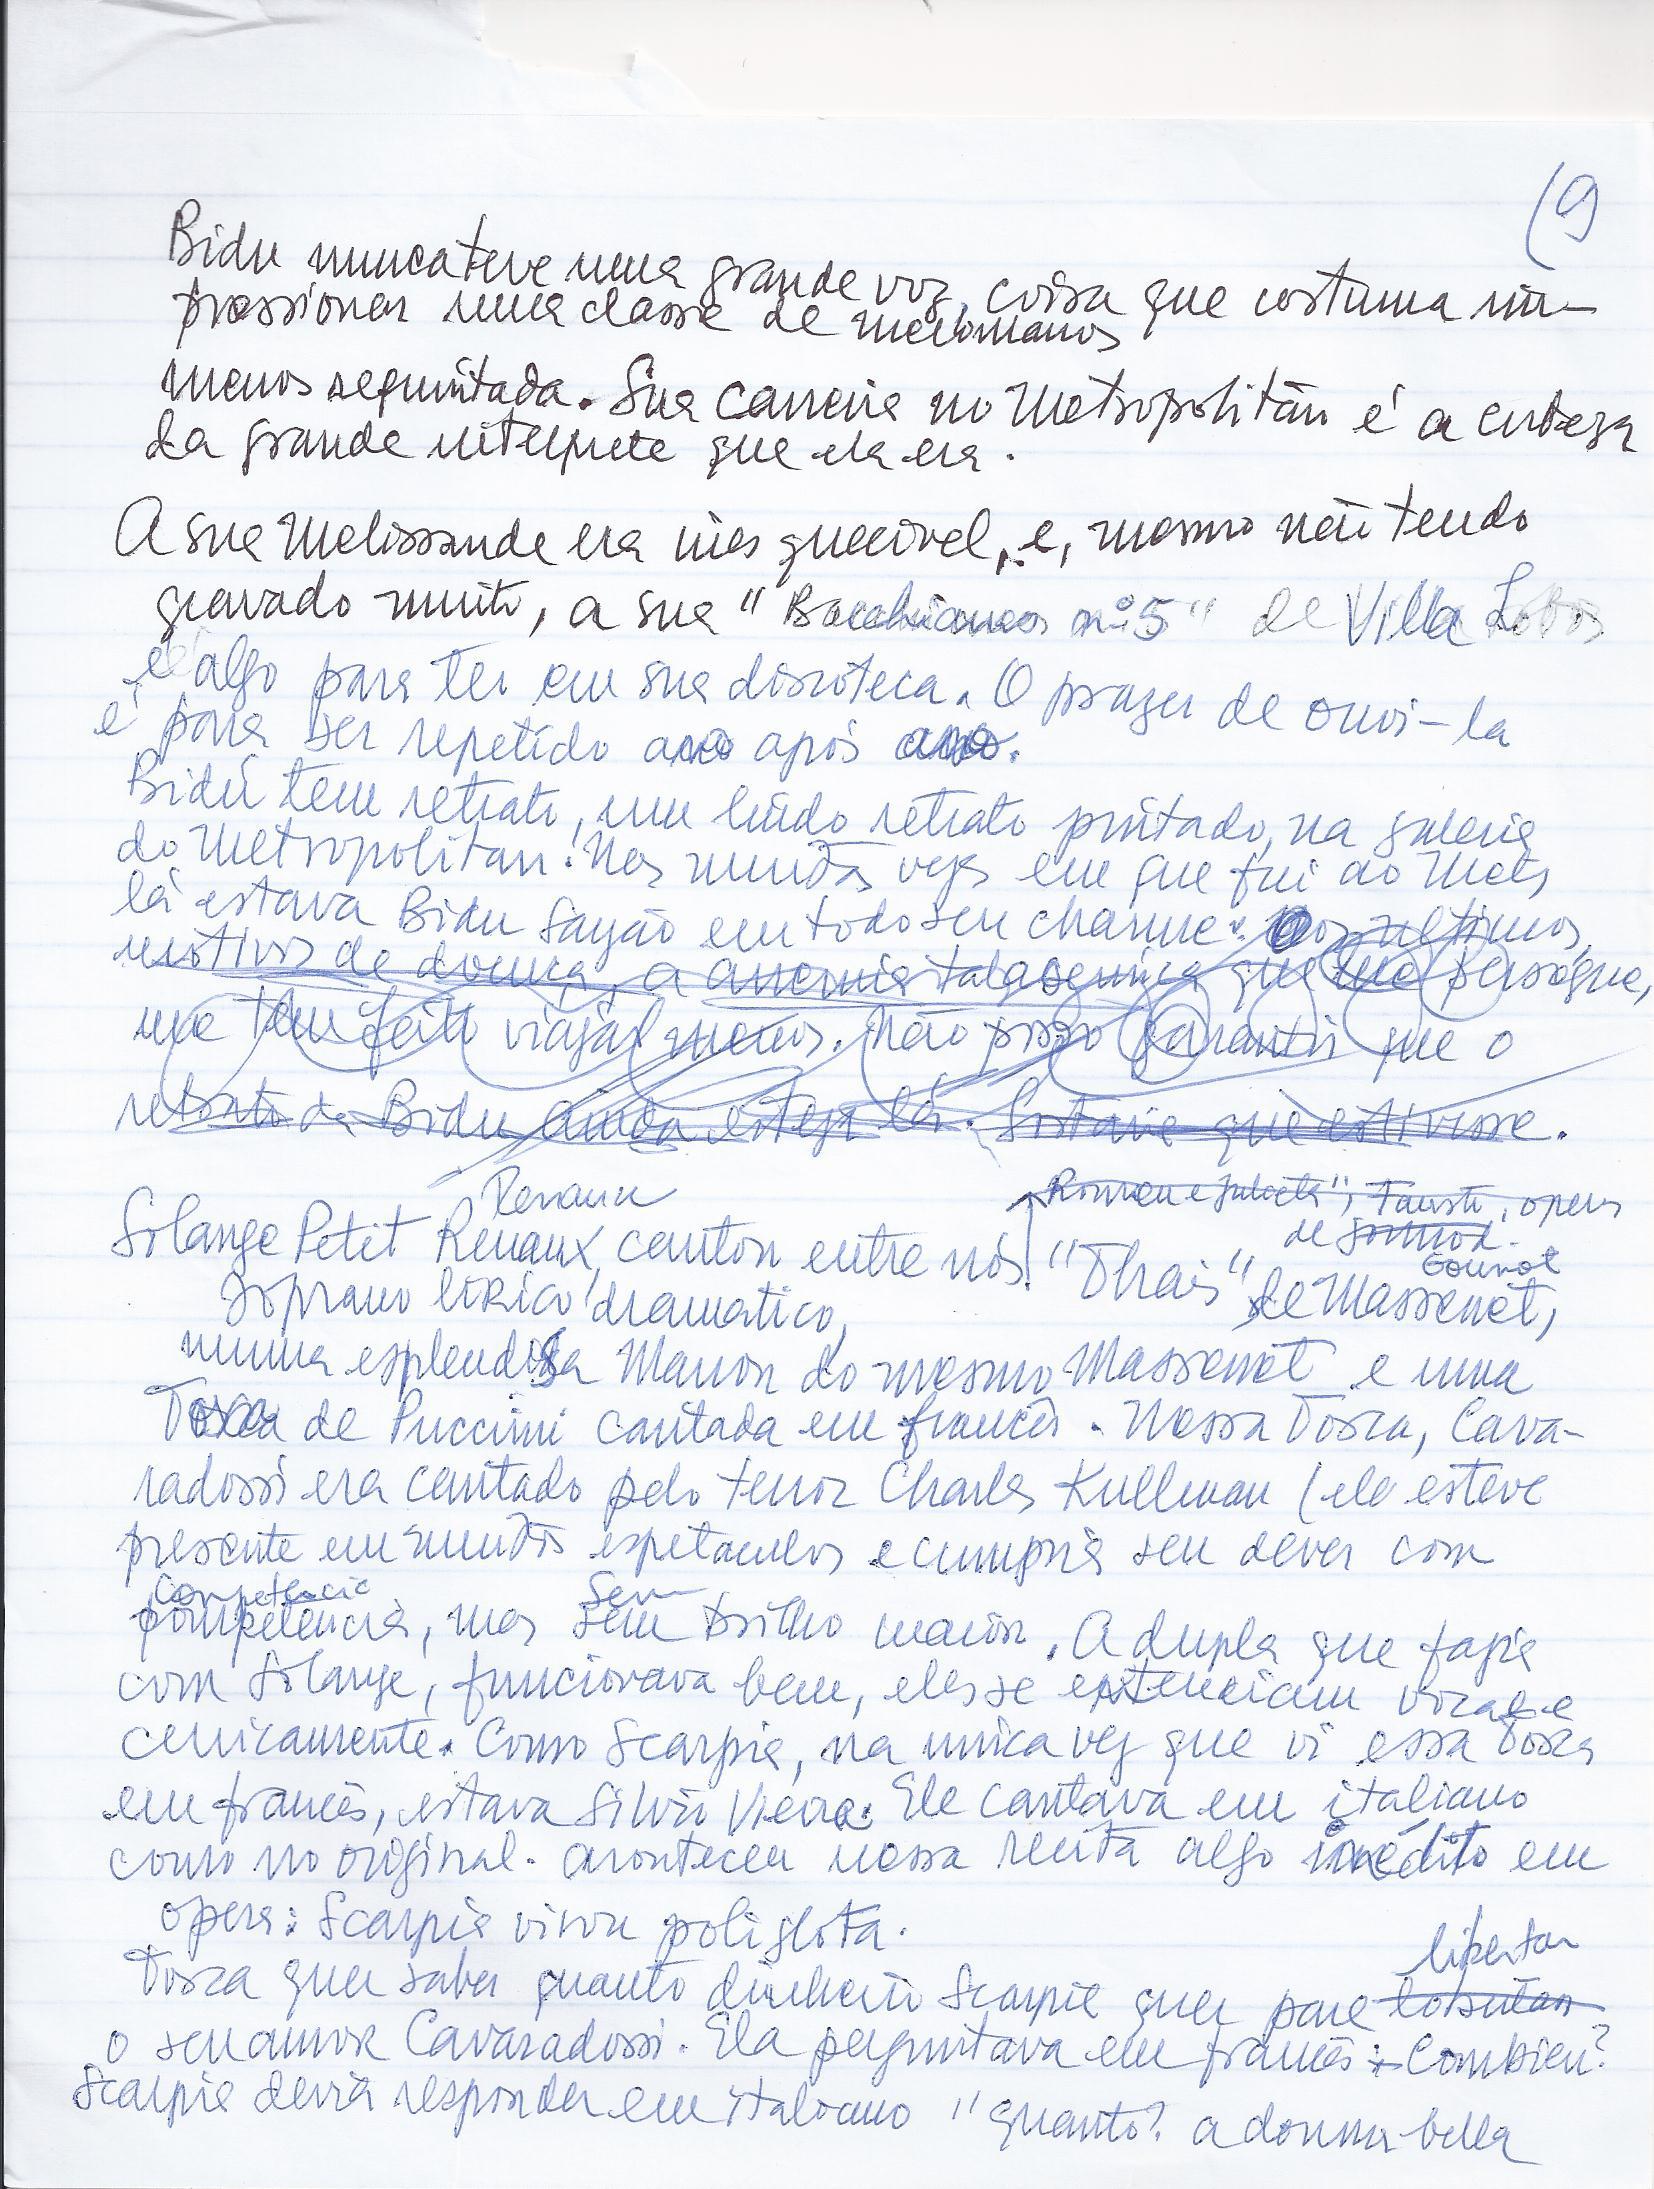 (9
Bidu nunca teve uma grande voz, coisa que costuma im-
pressionar uma classe de melomanos
menos requintada. Sua carreira no Metropolitan é a certeza
da grande interprete que ela era.
A sua Melissande era inesquecivel, e, mesmo não tendo
gravado muito, a sua "Bacchianas nº 5" de Villa Lobos
é algo para ter em sua discoteca. O prazer de ouvi-la
é para ser repetido ano após ano.
Bidú tem retrato, um lindo retrato pintado, na galeria
do Metropolitan. Nas muitas vezes em que fui ao Met,
lá estava Bidu Sayão em todo seu charme. Nos ultimos,
motivos de doença, a anemia talassemica que me persegue,
me tem feito viajar menos. Não posso garantir que o
retrato da Bidu ainda esteja lá. Gostaria que estivesse.
Renaux
Romeu e Julieta", Fausto, opera
de Gounod.
Gounod
Solange Petit Renaux, cantou entre nós "Thais" de Massenet,
soprano lirico dramatico,
numa esplendida Manon do mesmo Massenet e uma
Tosca de Puccini cantada em francês. Nessa Tosca, Cava-
radossi era cantado pelo tenor Charles Kullman (ele esteve
presente em muitos espetaculos e cumpria seu dever com
competencia sem
competencia, mas sem brilho maior. A dupla que fazia
com Solange, funcionava bem, eles se entendiam vocal e
cenicamente. Como Scarpia, na unica vez que vi essa Tosca
em francês, estava Silvio Vieira. Ele cantava em italiano
como no original. Aconteceu nessa recita algo inédito em
opera: Scarpia virou poliglota.
libertar
Tosca quer saber quanto dinheiro Scarpia quer para
o seu amor Cavaradossi. Ela perguntava em francês: Combien?
Scarpia devia responder em italiano "Quanto? a donna bella